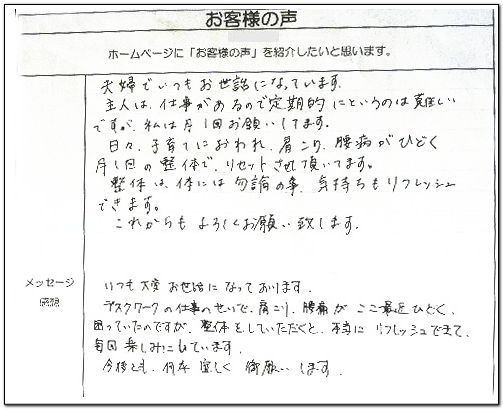 お客様の声
ホームページに「お客様の声」を紹介したいと思います。
夫婦でいつもお世話になっています。
主人は、仕事があるので定期的にというのは難しい
ですが、私は月1回お願いしてます。
日々、子育てにおわれ、肩こり、腰痛がひどく
月1回の整体で、リセットさせて頂いてます。
整体は、体には勿論の事、気持ちもリフレッシュ
できます。
これからもよろしくお願い致します。
メッセージ
感想
いつも大変お世話になっております。
デスクワークの仕事のせいで、肩こり、腰痛がここ最近ひどく、
困っていたのですが、整体をしていただくと、本当にリフレッシュできて、
毎回楽しみにしています。
今後とも、何卒宜しく御願いします。